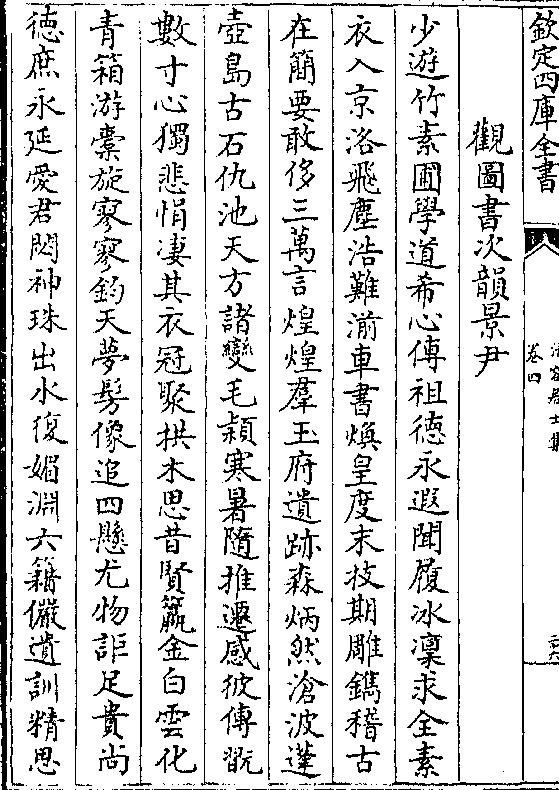 欽定四庫全書
清容居士集
卷四
觀圖書次韻景尹
少遊竹素圃學道希心傳祖德永遐聞履冰凜求全素
衣入京洛飛塵浩難湔車書煥皇度末技期雕鐫稽古
在簡要敢侈三萬言煌煌羣玉府遺跡森炳然滄波蓬
壺島古石仇池天方諸變毛穎寒暑隨推遷感彼傳翫
數寸心獨悲悁凄其衣冠聚拱木思昔賢籯金白雲化
青箱游橐旋寥寥鈞天夢髣像追四懸尤物詎足貴尚
德庶永延愛君閟神珠出水復媚淵六籍儼遺訓精思